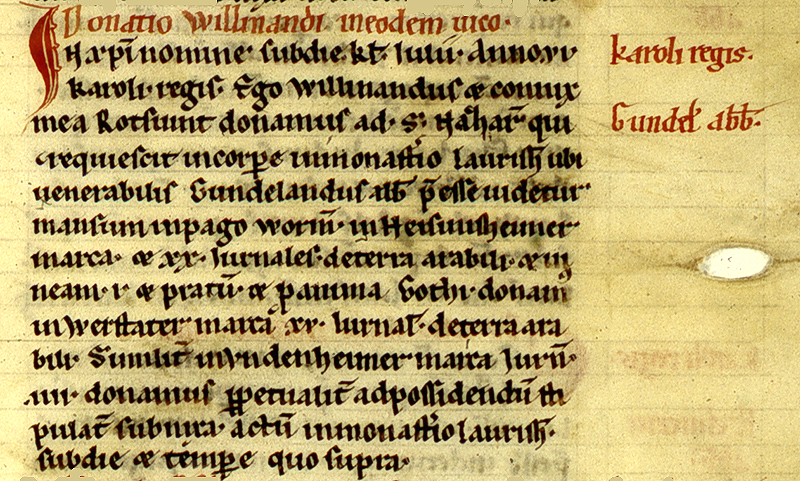 Donatio Willinandi in eodem uico.
In xp̄i nomine sub die kł. iulii. Anno vi
karoli regis. Ego Willinandus et coniux
mea Rotsuint donamus ad. s. Nazhar̄ qui
requiescit in corpore in monast̄io laurish̄ ubi
uenerabilis Gundelandus abb̄ p̄esse uidetur
mansum in pago worm̄. in Heisinisheimer
marca. et xx. iurnales. de terra arabili. et ui
neam. i et pratū. et pauma Gothi. donam̄
in Werstater marca xv. Iurnal̄. de terra ara
bili. Similit̄ in Vndenheimer marca Iurn̄.
iiii. donamus ꝑpetualit̄ ad possidendū sti
pulat̄ subnixa. actū in monast̄io laurish̄.
sub die et tempore quo supra.
karoli regis.
Gundel̄ abb̄.